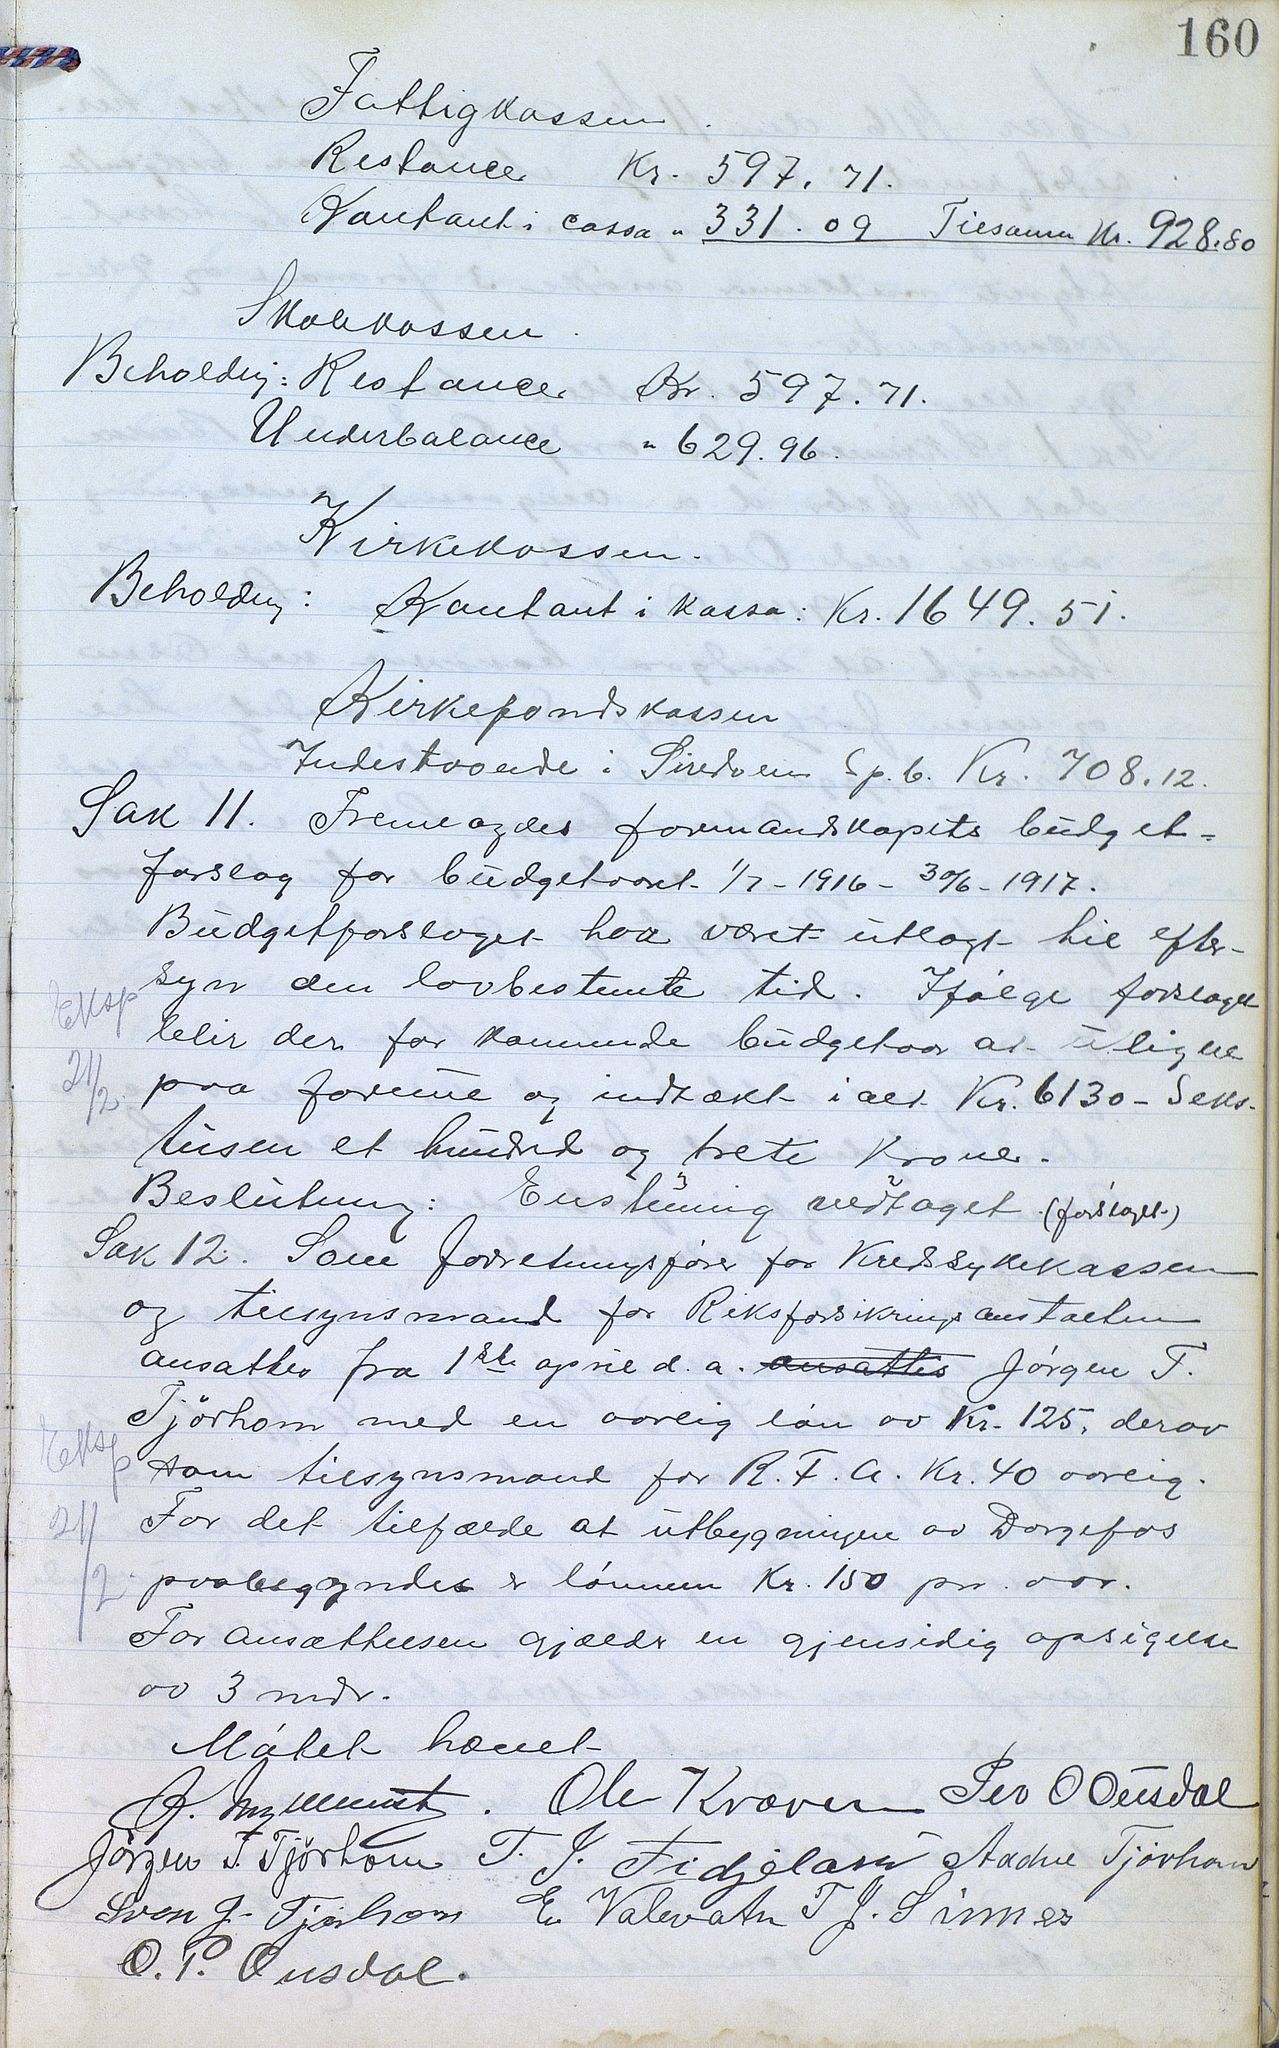 160
Fattigkassen.
Restancer Kr. 597.71.
Kontant i cassa " 331.09 Tilsamen Kr. 928.80
Skolekassen.
Beholdnig: Restancer Kr. 597.71.
Underbalance " 629.96.
Kirkekassen.
Beholdnig: Kontant i kassa: Kr. 1649.51.
Kirkefondskassen
Indestaaende i Siredalen Sp.b. Kr. 708.12.
Sak 11. Fremlagdes formandskapets budget-
forslag for budgetaaret 1/7-1916 - 30/6-1917.
Budgetforslaget har været utlagt til efter-
syn den lovbestemte tid. Ifølge forslaget
Eksp
21/2
blir der for kommende budgetaar at utligne
paa formue og indtækt i alt Kr. 6130 - Seks-
tusen et hundrd og treti Kroner.
Beslutning: Enstemig vedtaget (forslaget)
Sak 12. Som forretningsfører for Kredssykekassen
og tilsynsmand for Riksforsikringsanstalten
ansattes fra 1ste april d.a. ansattes Jørgen T.
Tjørhom med en aarlig løn av Kr. 125, derav
Eksp
21/2
som tilsynsmand for R.F.A. Kr. 40 aarlig.
For det tilfælde at utbygningen av Dorgefos
paabegyndes er lønnen Kr. 150 pr. aar.
For ansættelsen gjælder en gjensidig opsigelse
av 3 mdr.
Møtet hævet
Ole Kvæven Peo O Ousdal
Jørgen T. Tjørhom T. J. Fidjeland Aadne Tjørhom
Sven J. Tjørhom E. Valevatn T J. Sinnes
O. P. Ousdal.